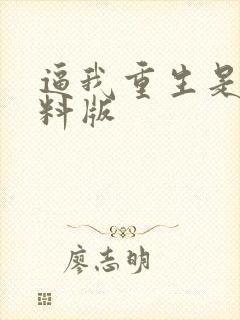 逼我重生是
料版
廖志明